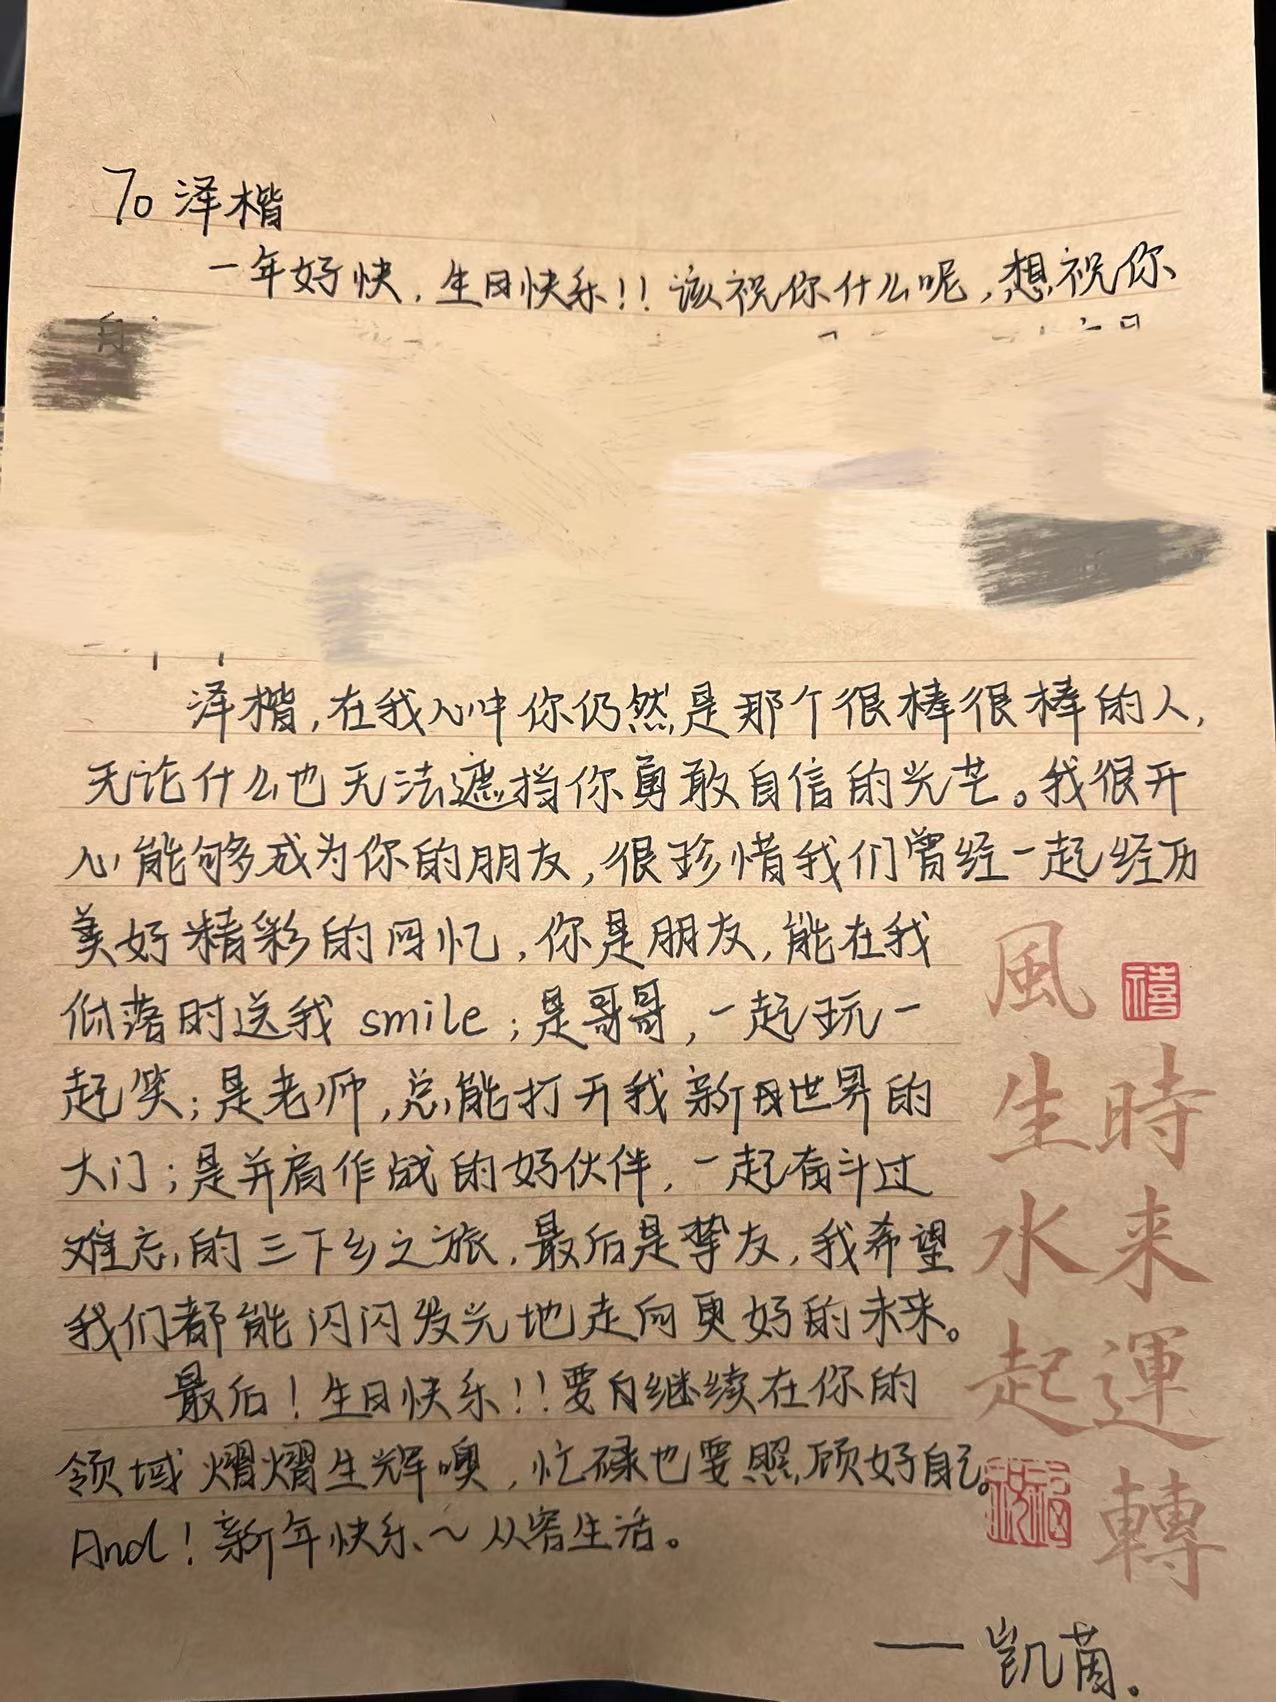 To 泽楷
一年好快，生日快乐！！该祝你什么呢，想祝你
泽楷，在我心中你仍然是那个很棒很棒的人，
无论什么也无法遮挡你勇敢自信的光芒。我很开
心能够成为你的朋友，很珍惜我们曾经一起经历
美好精彩的回忆，你是朋友，能在我
低落时送我 smile；是哥哥，一起玩一
起笑；是老师，总能打开我新世界的
大门；是并肩作战的好伙伴，一起奋斗过
难忘的三下乡之旅，最后是挚友，我希望
我们都能闪闪发光地走向更好的未来。
最后！生日快乐！！要继续在你的
领域熠熠生辉噢，忙碌也要照顾好自己。
And！新年快乐~从容生活。
——凯茵.
禧
時来運轉
風生水起